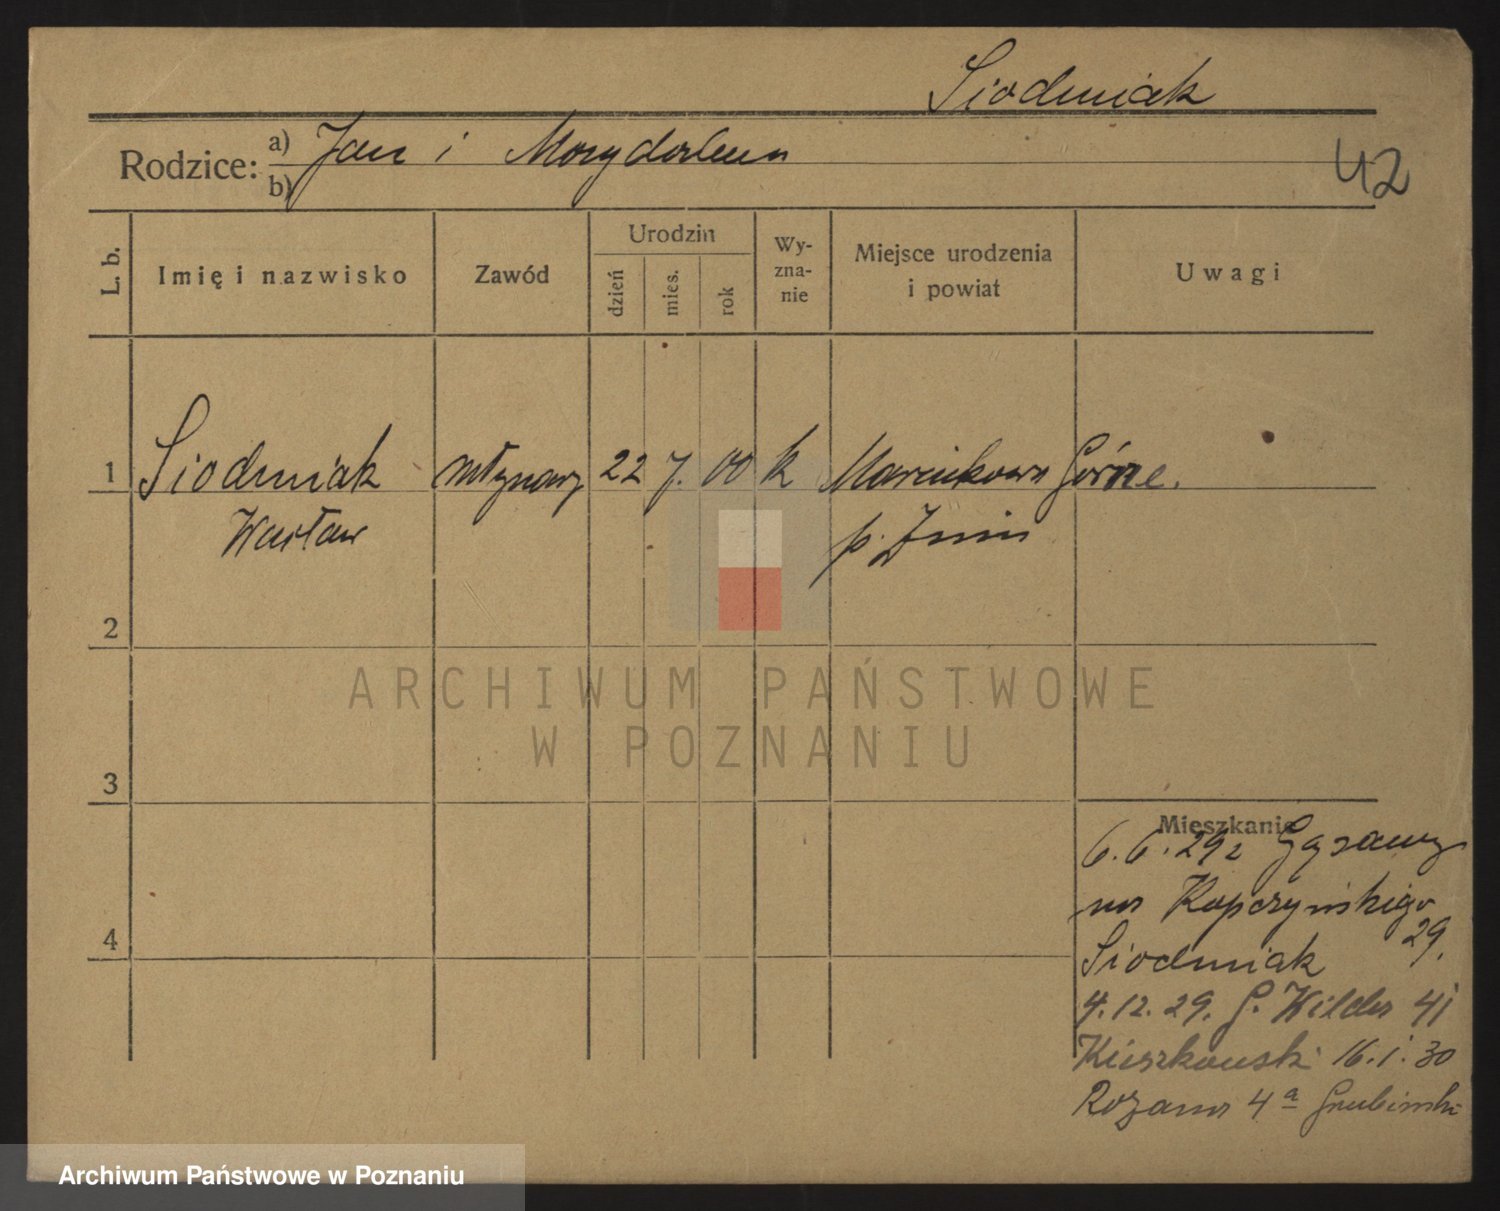 Siodmiak
Rodzice: a) Jan i Magdalena
b)
42
L. b.
Imię i nazwisko
Zawód
Urodzin
dzień
mies.
rok
Wy-
zna-
nie
Miejsce urodzenia
i powiat
Uwagi
1 Siodmiak młynarz 22 7. 00 k Marcinkowo Górne.
Wacław p. Żnin
2
3
4
Mieszkanie
6.6.29 z Gąsawy
na Kopczyńskiego
Siodmiak 29.
4.12.29. G. Wilda 41
Kieszkowski 16.1.30
Rozana 4a
ARCHIWUM PAŃSTWOWE
W POZNANIU
Archiwum Państwowe w Poznaniu